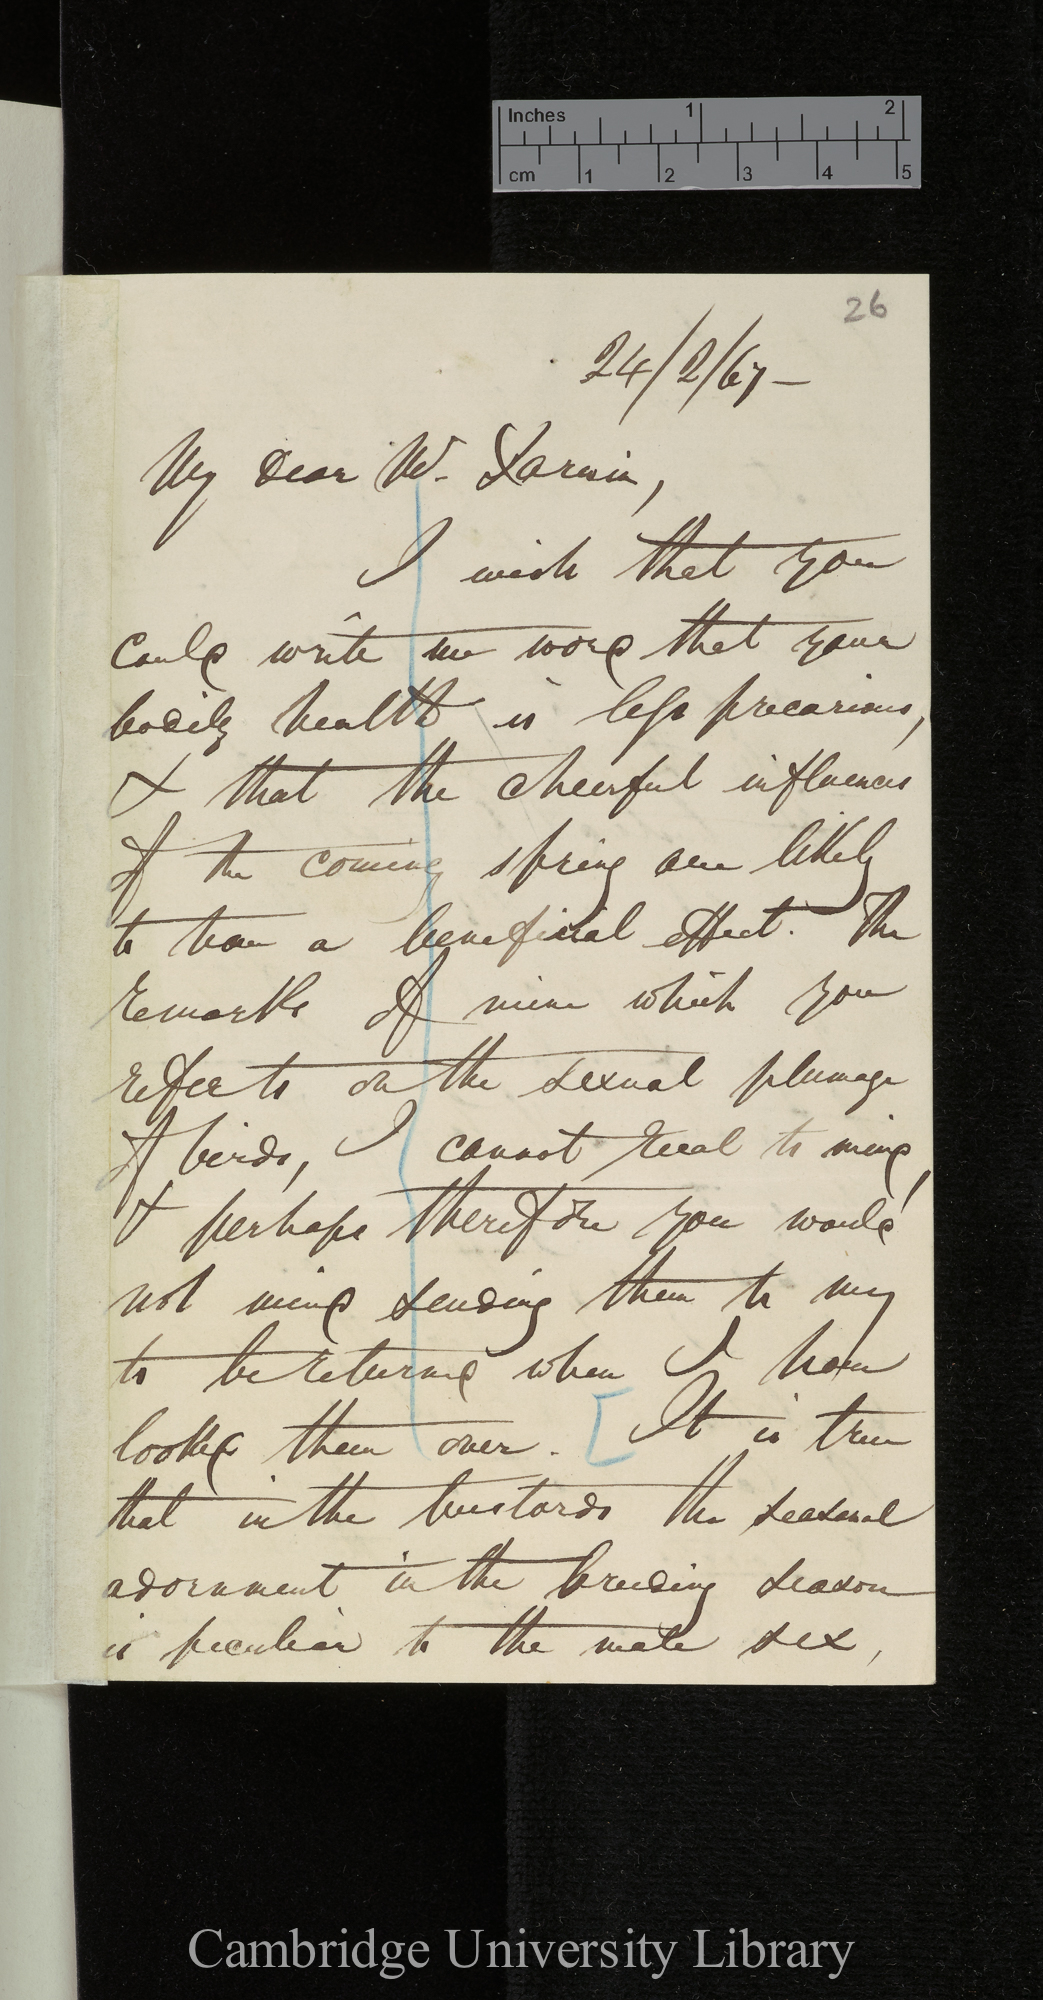 Inches 1 2
cm 1 2 3 4 5
26
24/2/67—
My dear Mr. Darwin,
I wish that you
could write me word that your
bodily health is less precarious,
& that the cheerful influences
of the coming spring are likely
to have a beneficial effect. The
remarks of mine which you
refer to on the sexual plumage
of birds, I cannot recal to mind,
& perhaps therefore you would
not mind sending them to my
to be returned when I have
looked them over. [ It is true
that in the bustards the seasonal
adornment in the breeding season
is peculiar to the male sex,
Cambridge University Library